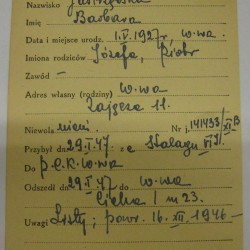 Nazwisko Jastrzębska
Imię Barbara
Data i miejsce urodz. 1.V.1927r, w-wa.
Imiona rodziców Józefa, Piotr
Zawód -
Adres własny (rodziny) w-wa
Zajęcza 11.
Niewola niem. Nr j. 141433/XI B
Przybył dn 29.I.47 z e Stalagu VI
Do P.C.K. w-wa
Odszedł dn 29.I.47 do w-wa
Cicha 1 m 23.
Uwagi Listy; powr. 16. XII 1946 -